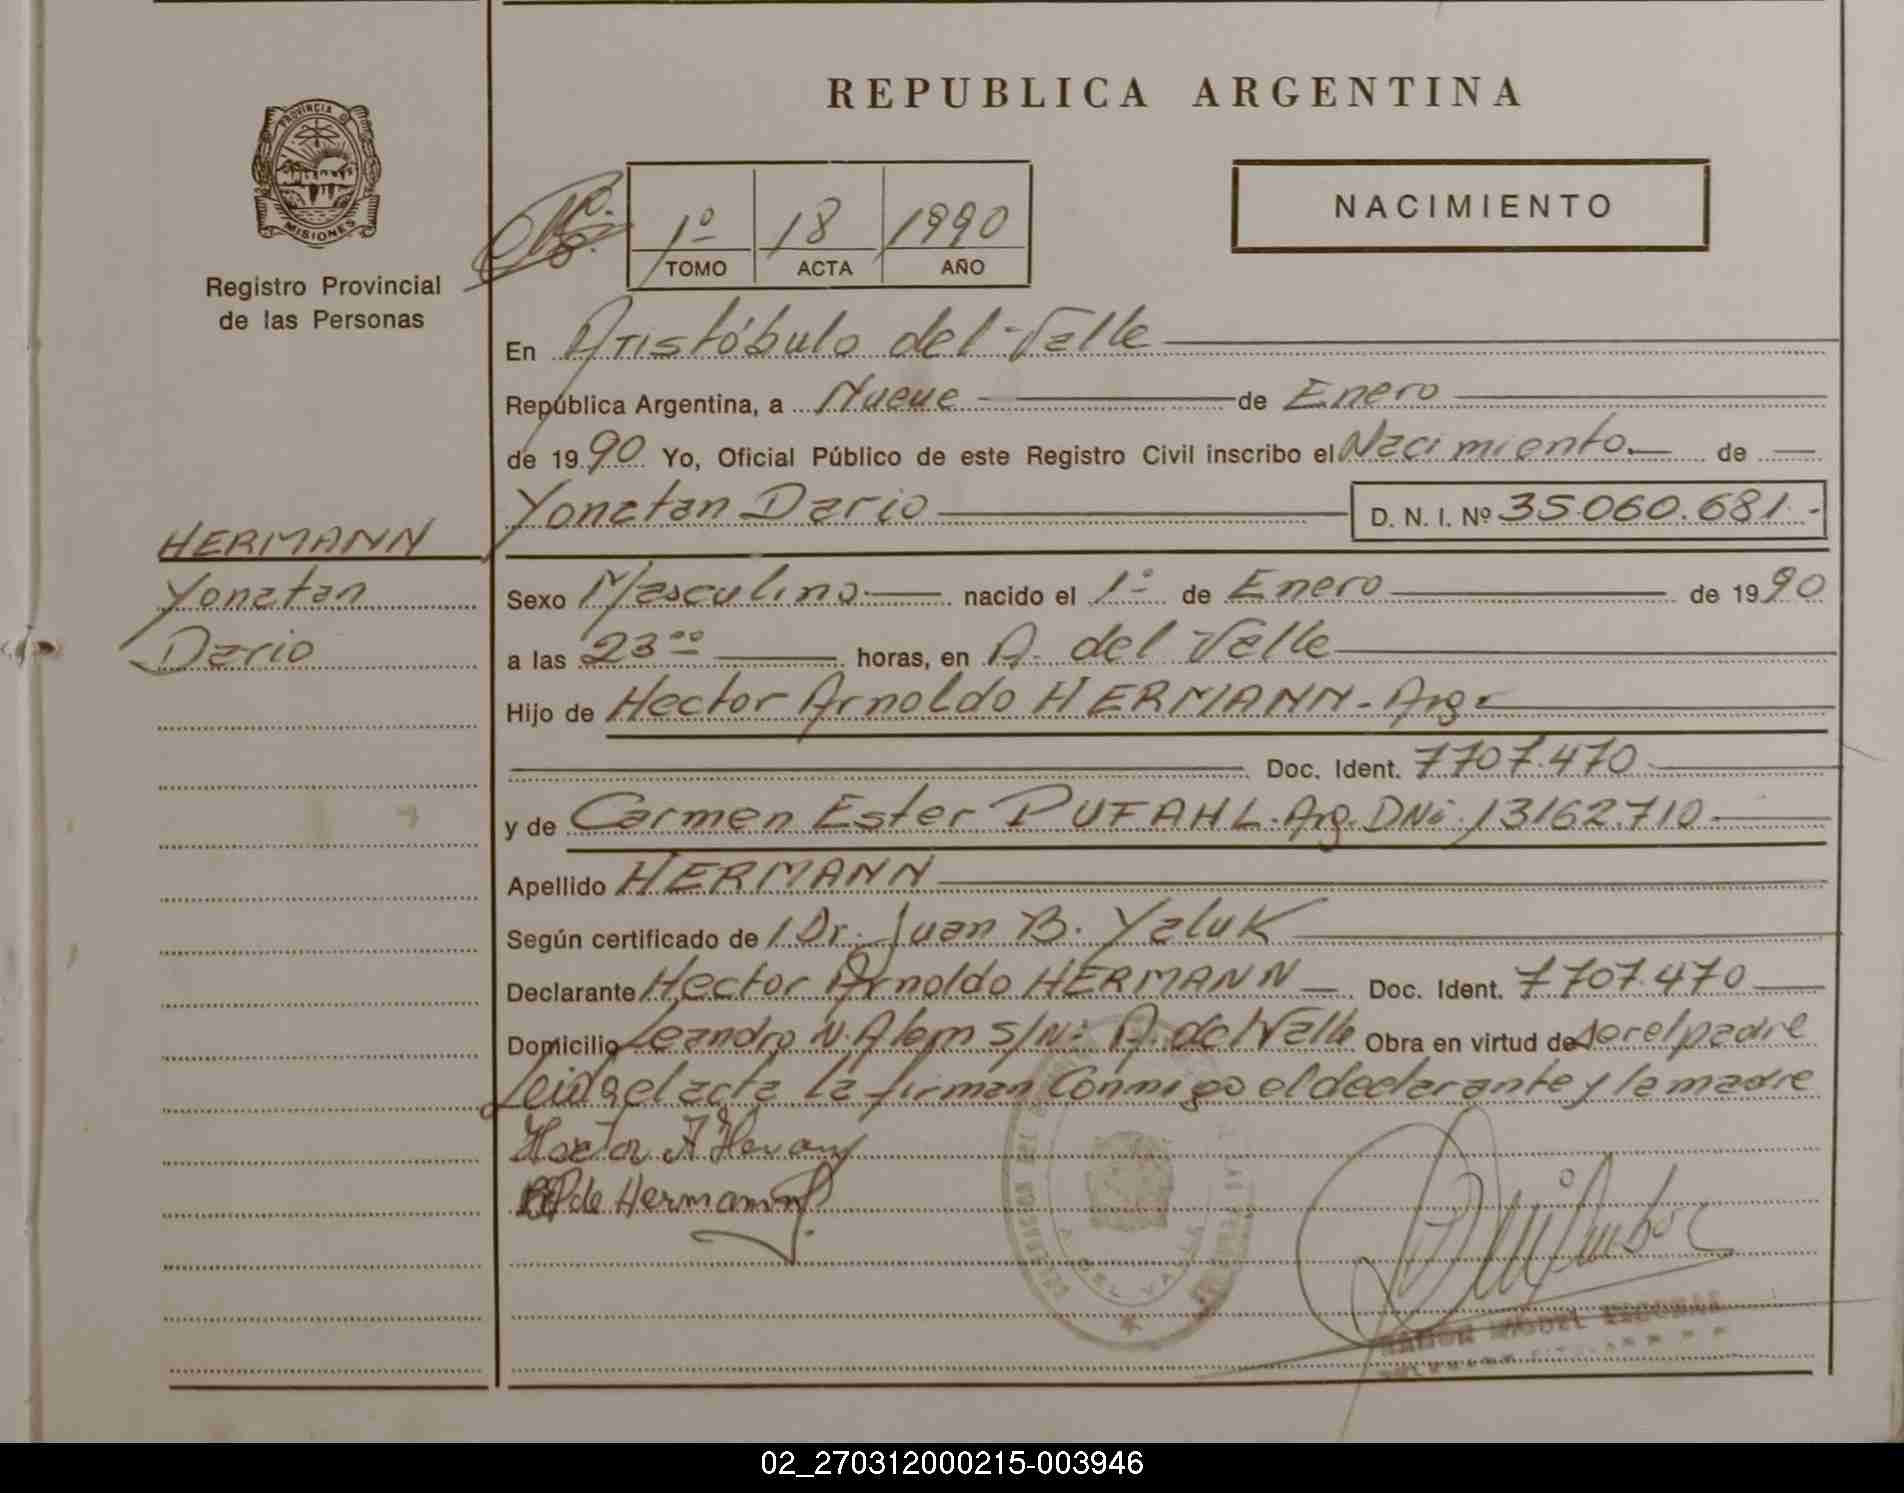 REPUBLICA ARGENTINA
PROVINCIA D
MISIONES
Registro Provincial
de las Personas
NACIMIENTO
1º 18 1990
TOMO ACTA AÑO
En Aristóbulo del Valle
República Argentina, a Nueve de Enero
de 1990 Yo, Oficial Público de este Registro Civil inscribo el Nacimiento de
Yonatan Dario D. N. I. Nº 35.060.681.-
HERMANN
Yonatan
Dario
Sexo Masculino nacido el 1º de Enero de 1990
a las 23 ºº horas, en A. del Valle
Hijo de Hector Arnoldo HERMANN - Arg.
Doc. Ident. 7707.470
y de Carmen Ester PUFAHL. Arg. DNi. 13162.710
Apellido HERMANN
Según certificado de Dr. Juan B. Yaluk
Declarante Hector Arnoldo HERMANN Doc. Ident. 7707.470
Domicilio Leandro N. Alem S/Nº A. del Valle Obra en virtud de ser el padre
Leida el acta la firman Conmigo el declarante y la madre
Hector A Herman
P de Hermann
A DEL VALLE
RAMON MIGUEL ESCOBAR
02_270312000215-003946